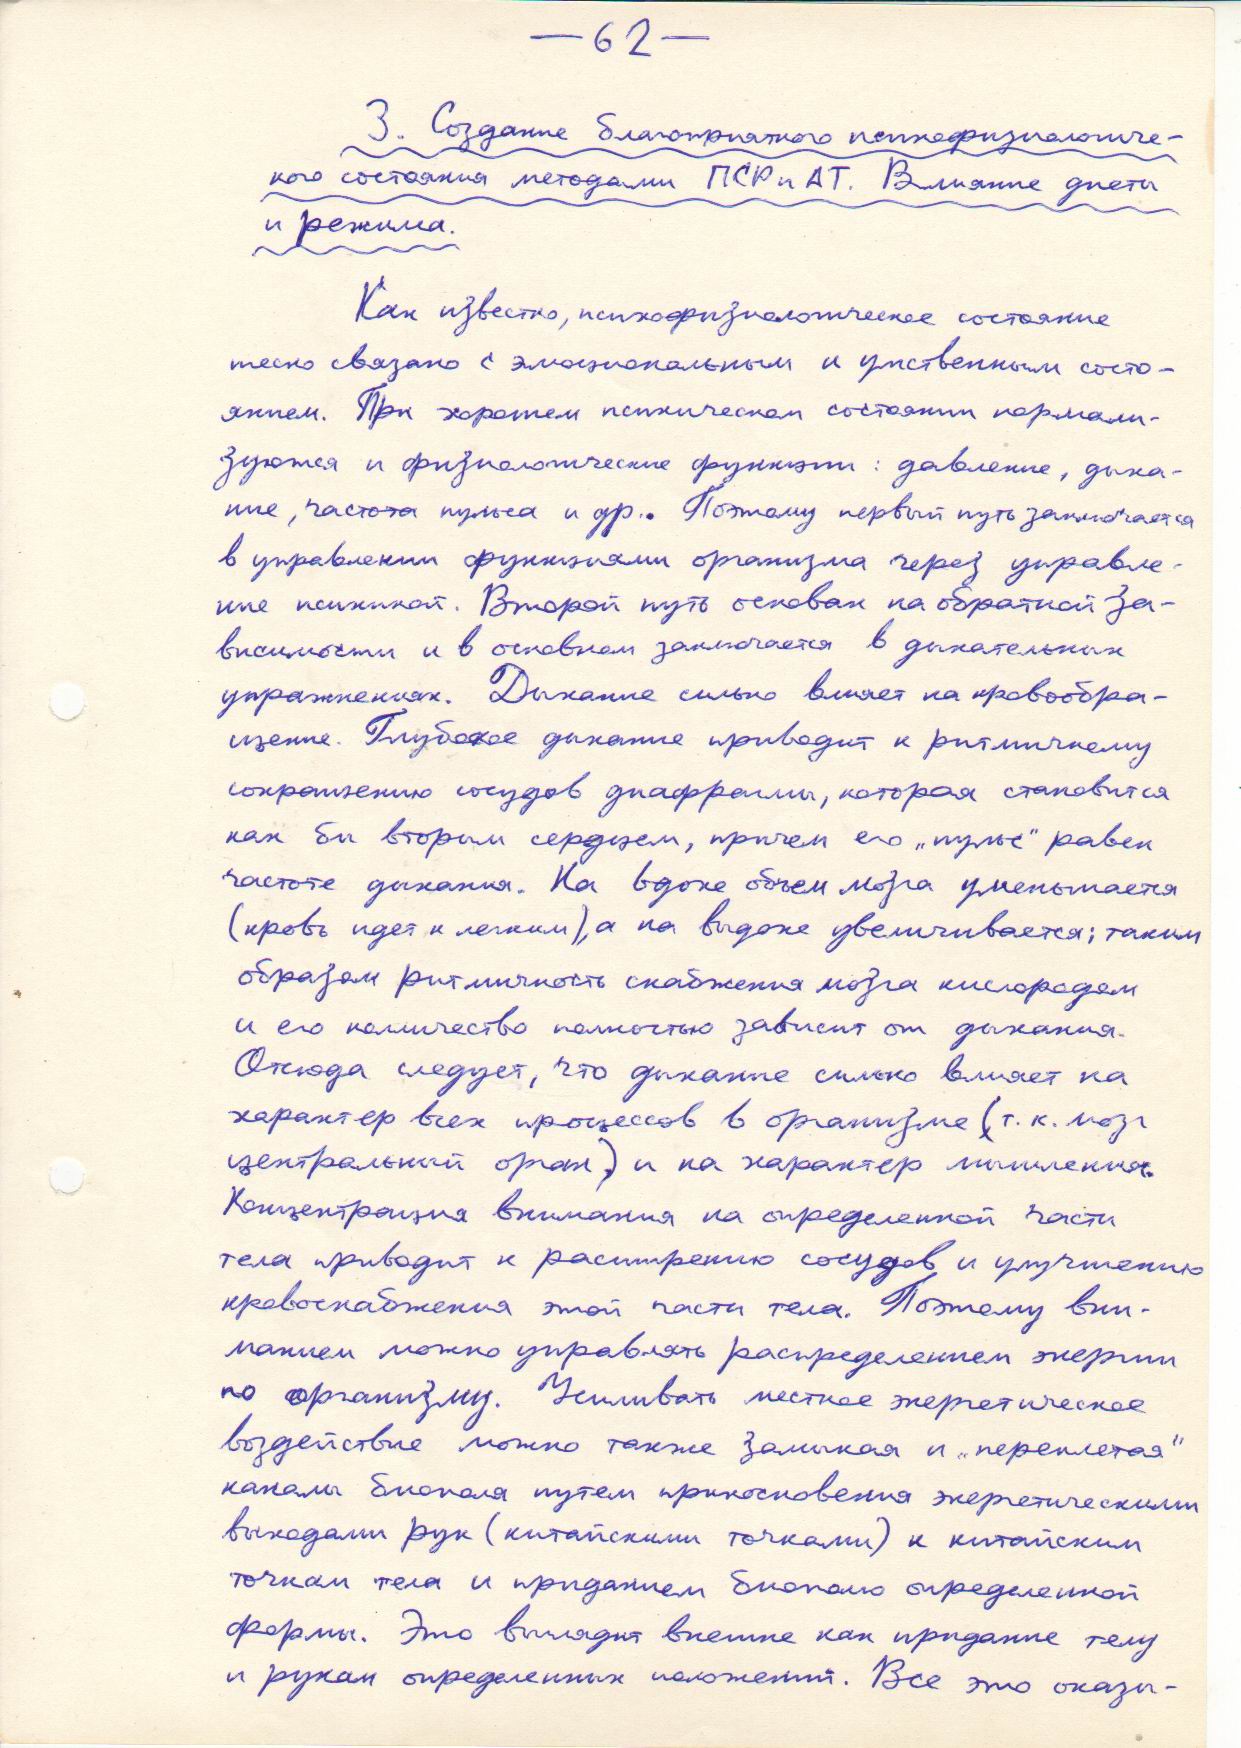 — 62 —
3. Создание благоприятного психофизиологиче-
кого состояния методами ПСР и АТ. Влияние диеты
и режима.
Как известно, психофизиологическое состояние
тесно связано с эмоциональным и умственным состо-
янием. При хорошем психическом состоянии нормали-
зуются и физиологические функции: давление, дыха-
ние, частота пульса и др.. Поэтому первый путь заключается
в управлении функциями организма через управле-
ние психикой. Второй путь основан на обратной за-
висимости и в основном заключается в дыхательных
упражнениях. Дыхание сильно влияет на кровообра-
щение. Глубокое дыхание приводит к ритмичному
сокращению сосудов диафрагмы, которая становится
как бы вторым сердцем, причем его „пульс“ равен
частоте дыхания. На вдохе объем мозга уменьшается
(кровь идет к легким), а на выдохе увеличивается; таким
образом ритмичность снабжения мозга кислородом
и его количество полностью зависит от дыхания.
Отсюда следует, что дыхание сильно влияет на
характер всех процессов в организме (т. к. мозг
центральный орган) и на характер мышления.
Концентрация внимания на определенной части
тела приводит к расширению сосудов и улучшению
кровоснабжения этой части тела. Поэтому вни-
манием можно управлять распределением энергии
по организму. Усиливать местное энергетическое
воздействие можно также замыкая и „переплетая“
каналы биополя путем прикосновения энергетическими
выходами рук (китайскими точками) к китайским
точкам тела и приданием биополю определенной
формы. Это выглядит внешне как придание телу
и рукам определенных положений. Все это оказы-